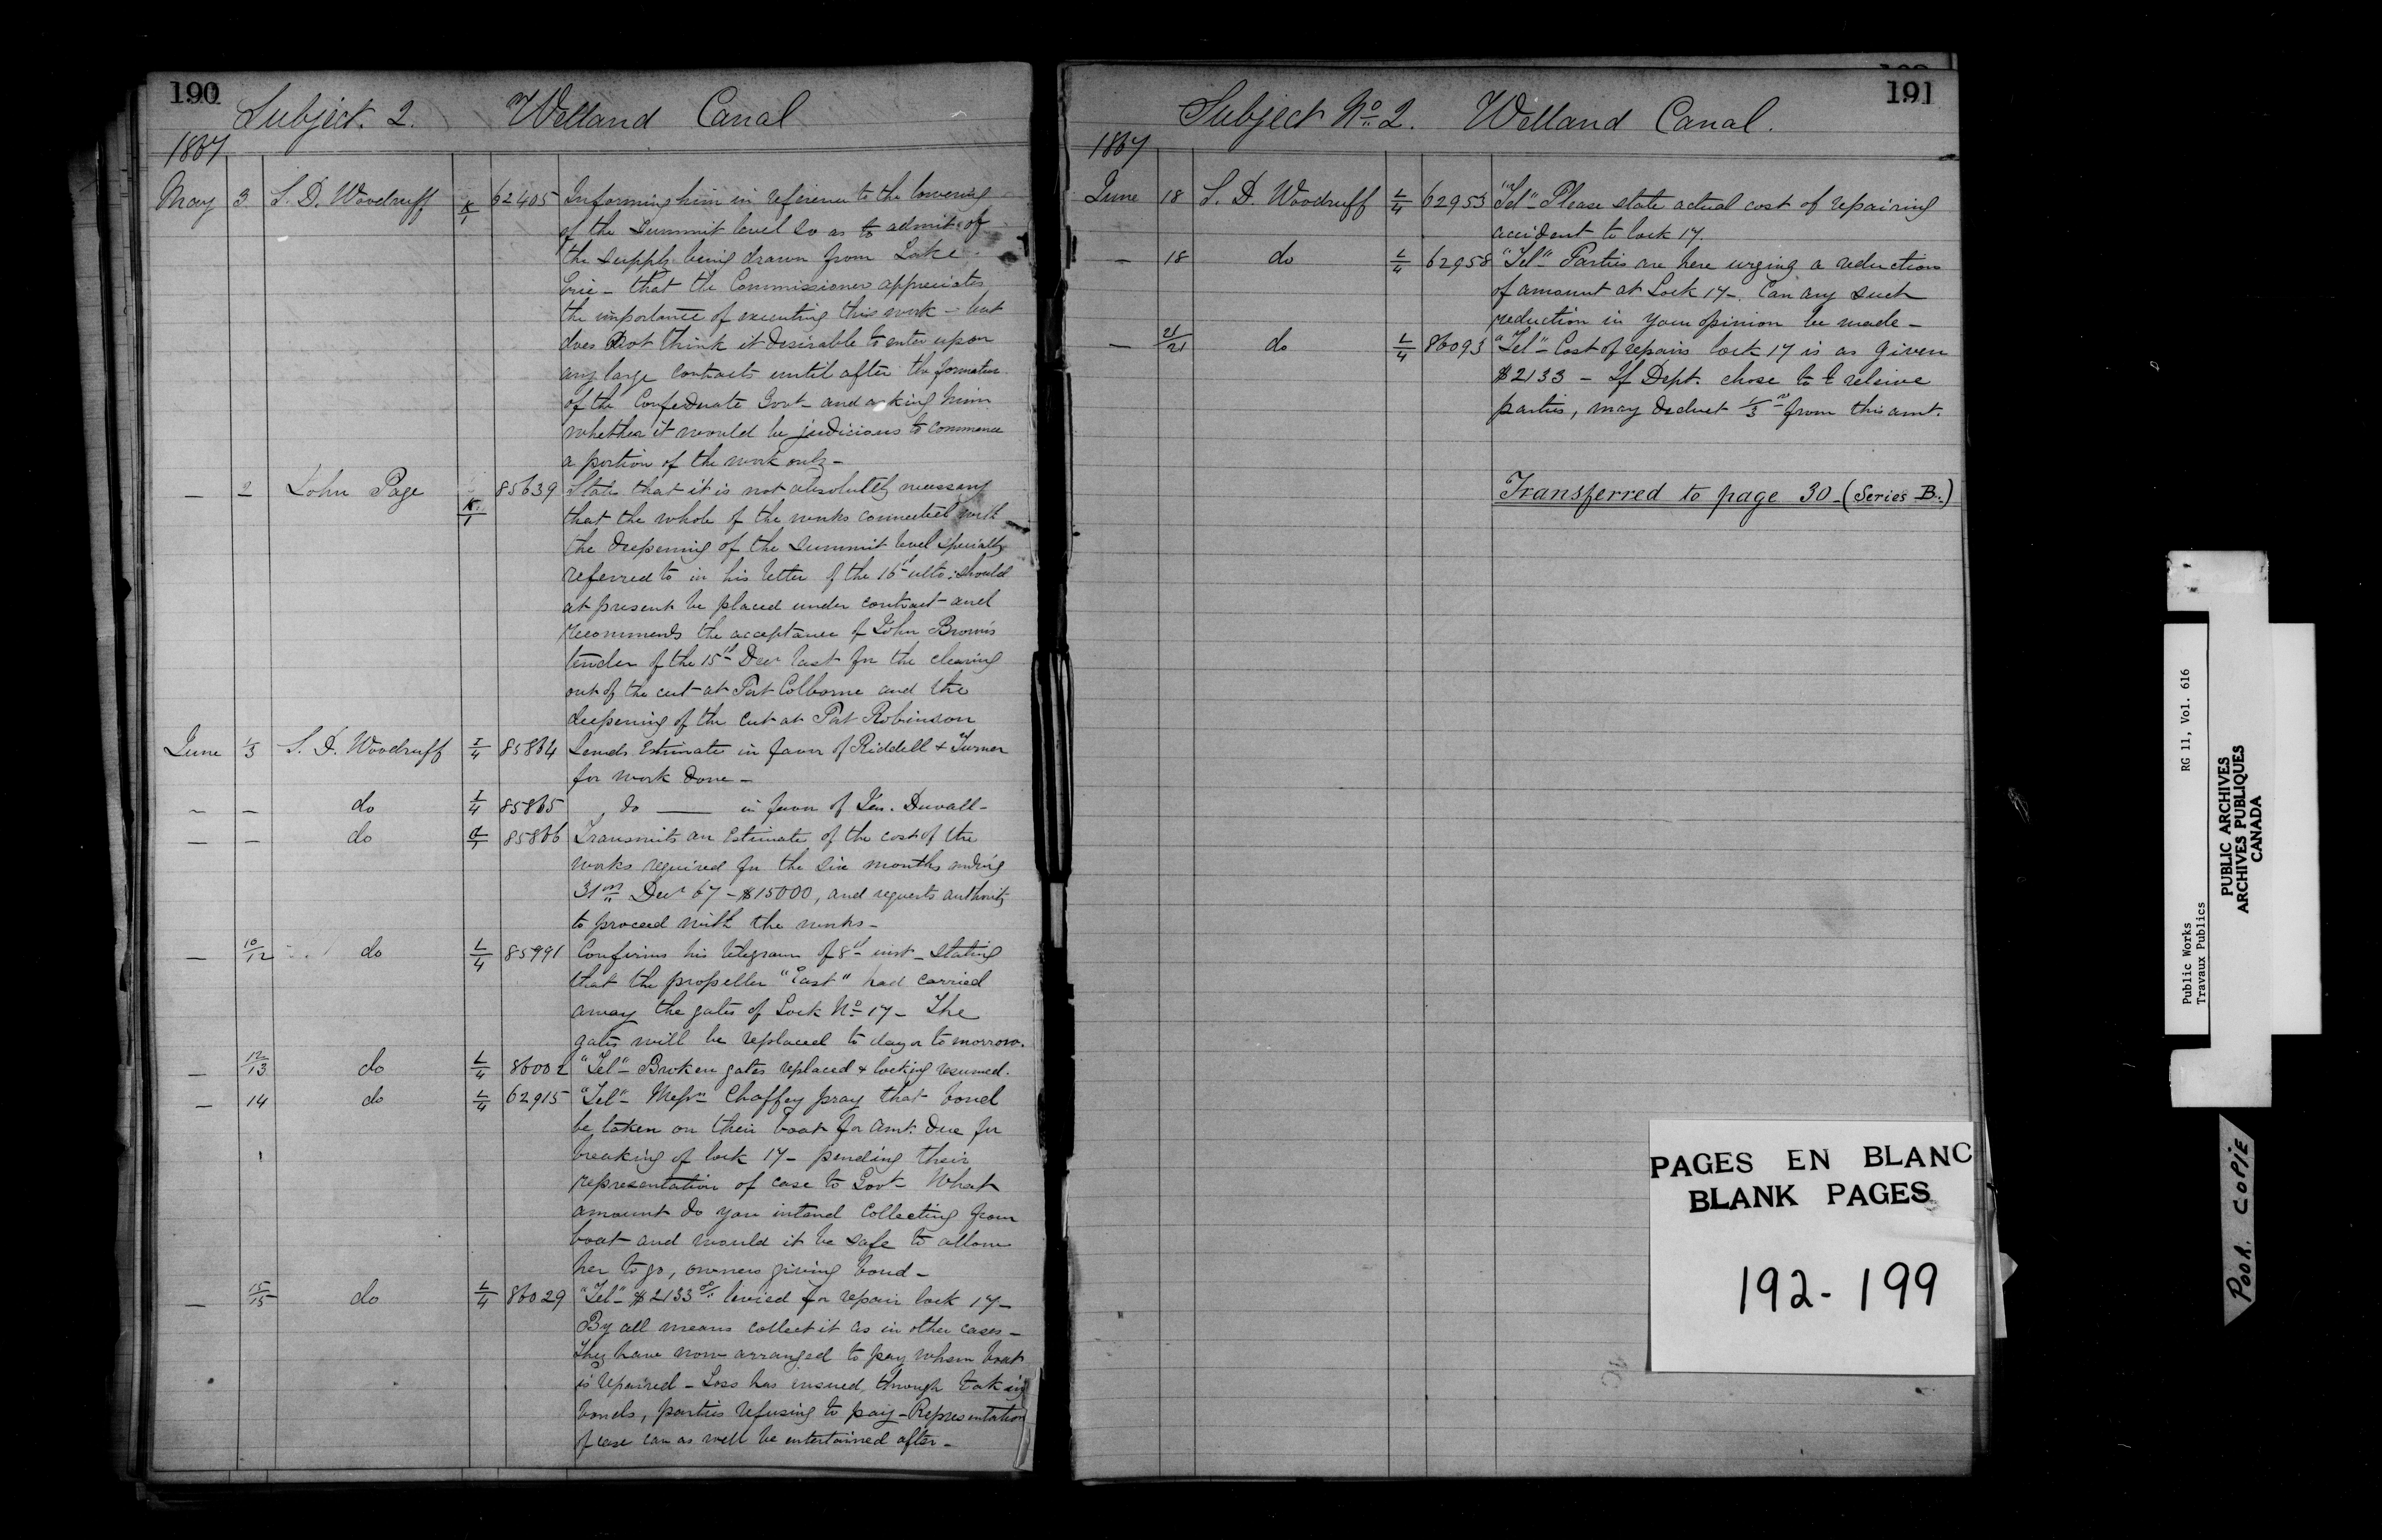 190
Subject. 2. Welland Canal
1867
May 3 S. D. Woodruff K/1 62405 Informing him in reference to the lowering
of the Summit level so as to admit of
the supply being drawn from Lake
Erie - that the Commissioner appreciates
the importance of executing this work - but
does not think it desirable to enter upon
any large contracts until after the formation
of the Confederate Govt - and asking him
whether it would be judicious to commence
a portion of the work only -
— 2 John Page K/1 85639 States that it is not absolutely necessary
that the whole of the works connected with
the deepening of the Summit level specially
referred to in his letter of the 16th ulto: should
at present be placed under contract - and
recommends the acceptance of John Brown's
tender of the 15th Decr last for the clearing
out of the cut at Port Colborne and the
deepening of the cut at Port Robinson
June 1/3 S. D. Woodruff I/4 85864 Sends Estimate in favor of Riddell & Turner
for work done -
— — do I/4 85865 do — in favor of Jas. Duvall -
— — do 85866 Transmits an Estimate of the cost of the
works required for the six months ending
31st Decr 67 - $15000, and requests authority
to proceed with the works -
— 10/12 do L/4 85991 Confirms his telegram of 8th inst - stating
that the propeller "East" had carried
away the gates of Lock No 17 - The
gates will be replaced to day or to morrow.
— 12/13 do L/4 86002 "Tel" - Broken gates replaced & locking resumed.
— 14 do L/4 62915 "Tel" - Messrs Chaffey pray that bond
be taken on their boat for amt. due for
breaking of lock 17 - pending their
representation of case to Govt - What
amount do you intend collecting from
boat and would it be safe to allow
her to go, owners giving bond -
— 15/15 do L/4 86029 "Tel" - $2133 levied for repair lock 17 -
By all means collect it as in other cases -
They have now arranged to pay when boat
is repaired - Loss has ensued through taking
bonds, parties refusing to pay - Representation
of case can as well be entertained after -
191
Subject No 2. Welland Canal.
1867
June 18 S. D. Woodruff L/4 62953 "Tel" - Please state actual cost of repairing
accident to lock 17.
— 18 do L/4 62958 "Tel" - Parties are here urging a reduction
of amount at Lock 17 -. Can any such
reduction in your opinion be made -
— 21/21 do L/4 86093 "Tel" - Cost of repairs lock 17 is as given
$2133 - If Dept. chose to releive
parties, may deduct 1/3 rd from this amt.
Transferred to page 30 - (Series B.)
PAGES EN BLANC
BLANK PAGES
192 - 199
Public Works RG 11, Vol. 616
Travaux Publics
PUBLIC ARCHIVES
ARCHIVES PUBLIQUES
CANADA
POOR COPIE